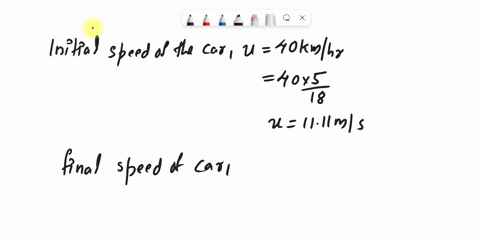 Initial speed of the car, u = 40 km/hr
= 40 × 5/18
u = 11.11 m/s
final speed of car,